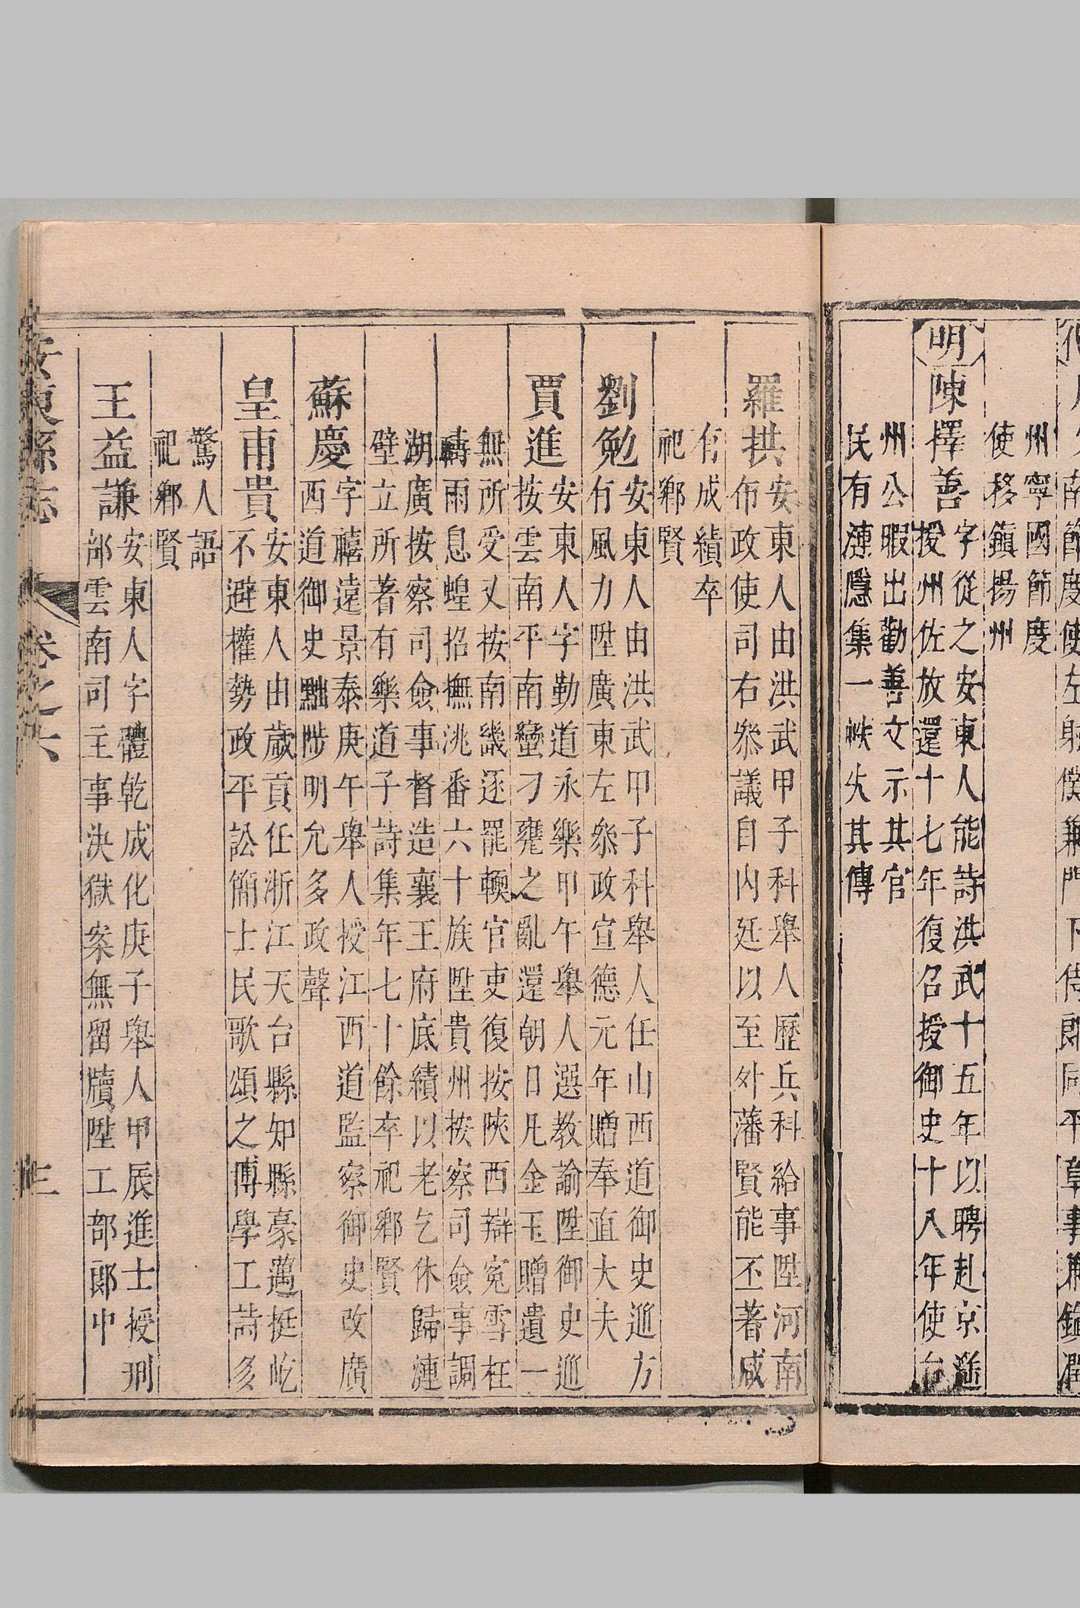 州寧國節度
使移鎮揚州
明
陳擇善
字從之安東人能詩洪武十五年以聘赴京遥
授州佐放還十七年復召授御史十八年使台
州公暇出勸善文示其官
民有漣隱集一帙失其傳
羅拱
安東人由洪武甲子科舉人歷兵科給事陞河南
布政使司右叅議自内廷以至外藩賢能丕著咸
有成績卒
祀鄉賢
劉勉
安東人由洪武甲子科舉人任山西道御史廵方
有風力陞廣東左叅政宣德元年贈奉直大夫
賈進
安東人字勤道永樂甲午舉人選教諭陞御史廵
按雲南平南蠻刁甕之亂還朝日凡金玉贈遺一
無所受又按南畿逐罷輭官吏復按陝西辯寃雪枉
禱雨息蝗招撫洮番六十族陞貴州按察司僉事調
湖廣按察司僉事督造襄王府底績以老乞休歸漣
壁立所著有樂道子詩集年七十餘卒祀鄉賢
蘇慶
字禧遠景泰庚午舉人授江西道監察御史改廣
西道御史黜陟明允多政聲
皇甫貴
安東人由歲貢任浙江天台縣知縣豪邁挺屹
不避權勢政平訟簡士民歌頌之博學工詩多
驚人語
祀鄉賢
王益謙
安東人字體乾成化庚子舉人甲辰進士授刑
部雲南司主事決獄案無留牘陞工部郎中
安東縣志
卷之六